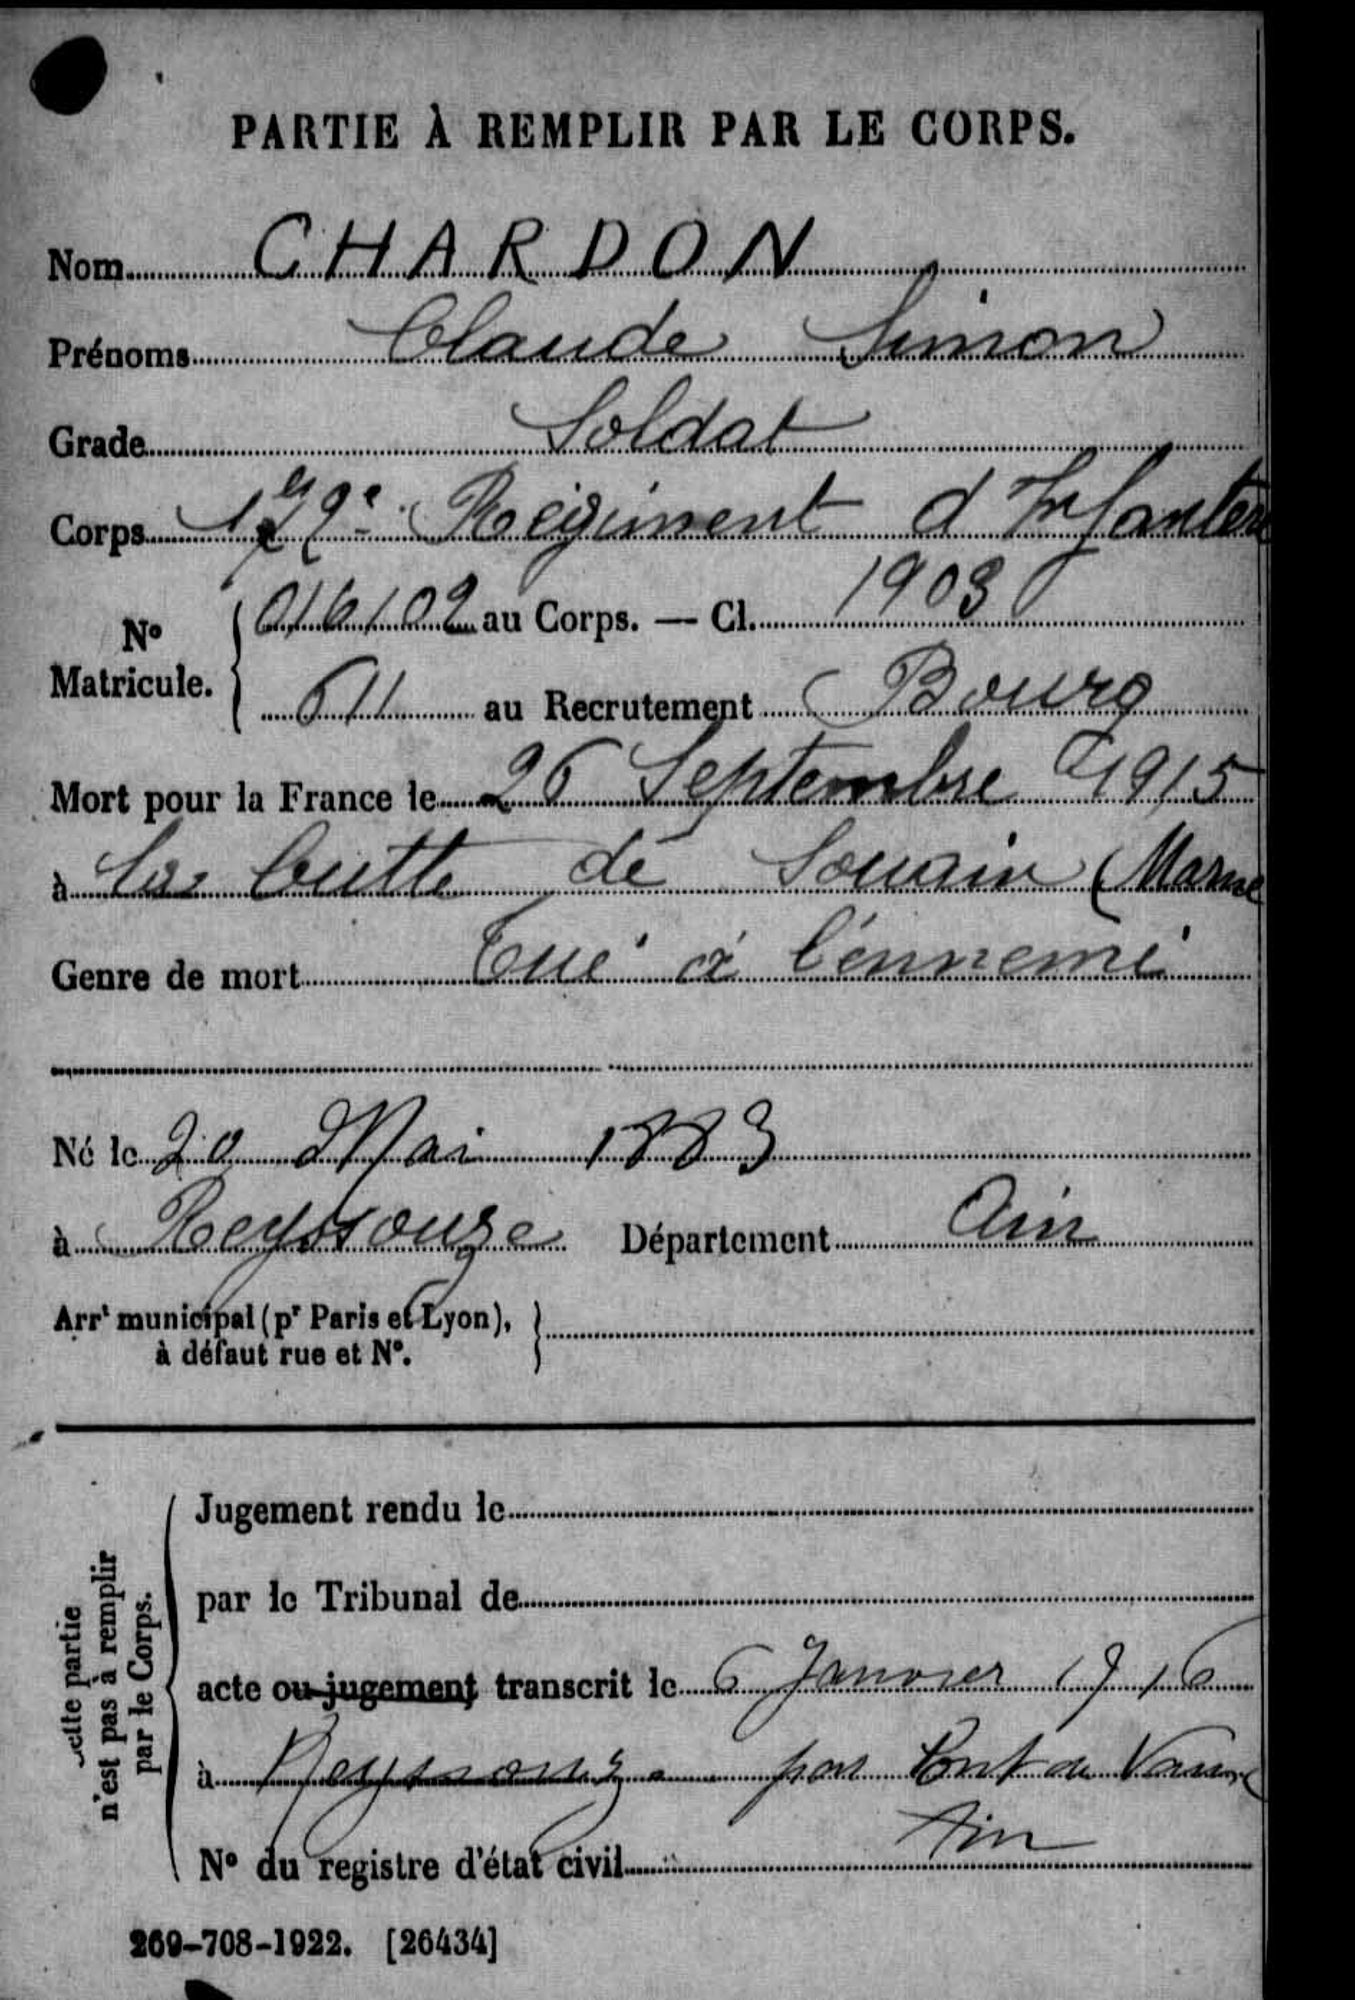 PARTIE À REMPLIR PAR LE CORPS.
Nom CHARDON
Prénoms Claude Simon
Grade Soldat
Corps Régiment d'Infanterie
N° Matricule. 016102 au Corps. — Cl. 1903
611 au Recrutement Bourg
Mort pour la France le 26 Septembre 1915
à la butte de Souain (Marne
Genre de mort Tué à l'énnemi
Né le 20 Mai 1883
à Reyssouze Département Ain
Arrt municipal (pr Paris et Lyon),
à défaut rue et N°.
Cette partie
n'est pas à remplir
par le Corps.
Jugement rendu le
par le Tribunal de
acte ou jugement transcrit le 6 Janvier 1916
à Reyssouze par Pont de Vaux
Ain
N° du registre d'état civil
269-708-1922. [26434]